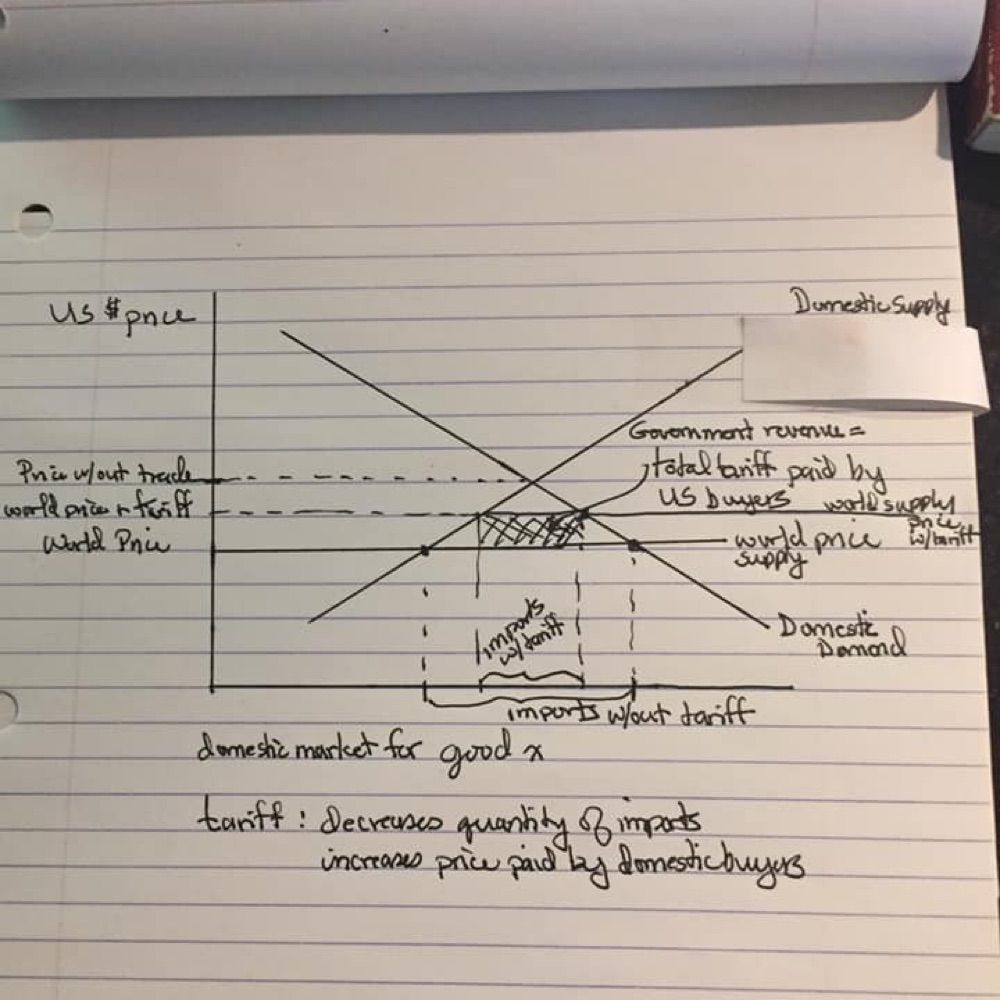 US $ price
Domestic supply
Government revenue =
total tariff paid by
US buyers
Price w/out trade
world price + tariff
World Price
world supply
price
w/tariff
world price
supply
imports
w/tariff
Domestic
Demand
imports w/out tariff
domestic market for good x
tariff : decreases quantity of imports
increases price paid by domestic buyers